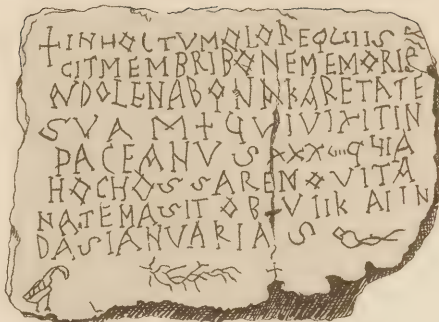 +INHOCTVMOLOREQUIIS
CITMEMBRIBONEMEMORIE
NDOLENABONNKARETATE
SVA M+QVIVIXITIN
PACEANVSXXXIIII QHIA
HOCHOSSAREMOVITA
NATEMASIT OB VIIKAIIN
DASIANVARIAS